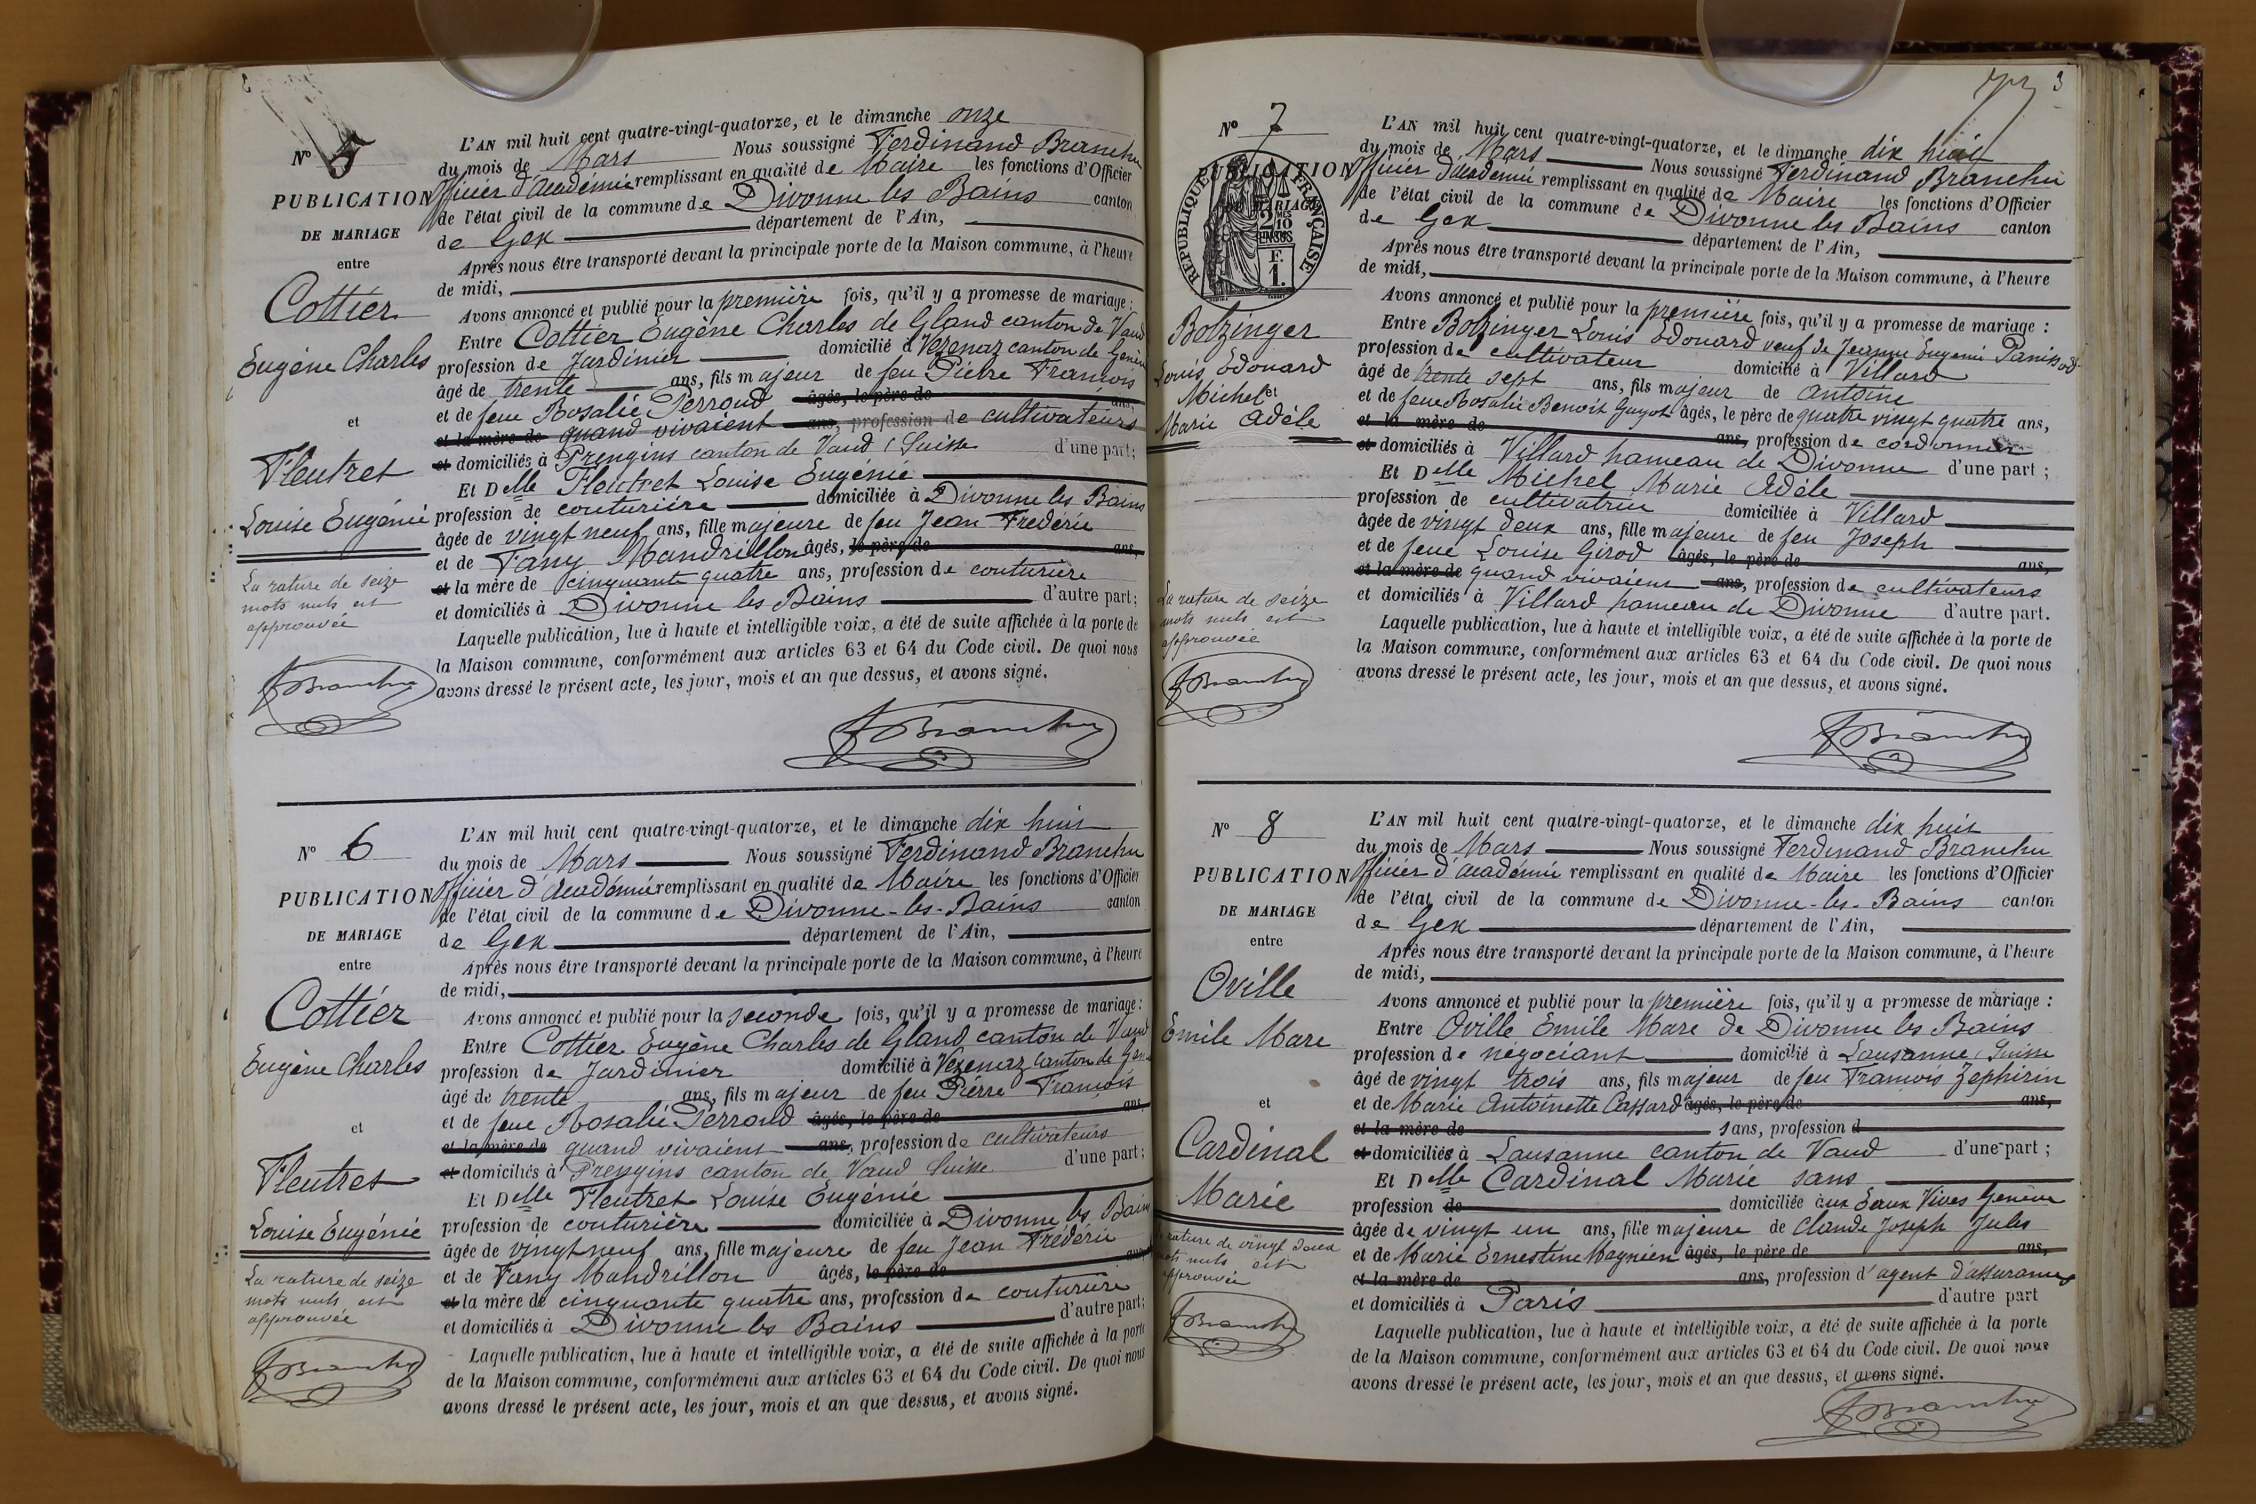 2
N° 5
PUBLICATION
DE MARIAGE
entre
Cottier
Eugène Charles
et
Fleutret
Louise Eugénie
La rature de seize
mots nuls est
approuvée
FBranchu
L'AN mil huit cent quatre-vingt-quatorze, et le dimanche onze
du mois de Mars Nous soussigné Ferdinand Branchu
officier d'académie remplissant en qualité de Maire les fonctions d'Officier
de l'état civil de la commune de Divonne les Bains canton
de Gex département de l'Ain,
Après nous être transporté devant la principale porte de la Maison commune, à l'heure
de midi,
Avons annoncé et publié pour la première fois, qu'il y a promesse de mariage :
Entre Cottier Eugène Charles de Gland canton de Vaud
profession de Jardinier domicilié à Vezenaz canton de Genève
âgé de trente ans, fils majeur de feu Pierre François
et de feue Rosalie Perroud âgés, le père de ans,
et la mère de quand vivaient ans, profession de cultivateurs
et domiciliés à Prengins canton de Vaud (Suisse d'une part;
Et Delle Fleutret Louise Eugénie
profession de couturière domiciliée à Divonne les Bains
âgée de vingt neuf ans, fille majeure de feu Jean Frédéric
et de Fany Mandrillon âgés, le père de ans,
et la mère de cinquante quatre ans, profession de couturière
et domiciliés à Divonne les Bains d'autre part;
Laquelle publication, lue à haute et intelligible voix, a été de suite affichée à la porte de
la Maison commune, conformément aux articles 63 et 64 du Code civil. De quoi nous
avons dressé le présent acte, les jour, mois et an que dessus, et avons signé.
FBranchu
N° 6
PUBLICATION
DE MARIAGE
entre
Cottier
Eugène Charles
et
Fleutret
Louise Eugénie
La rature de seize
mots nuls est
approuvée
FBranchu
L'AN mil huit cent quatre-vingt-quatorze, et le dimanche dix huit
du mois de Mars Nous soussigné Ferdinand Branchu
officier d'académie remplissant en qualité de Maire les fonctions d'Officier
de l'état civil de la commune de Divonne-les-Bains canton
de Gex département de l'Ain,
Après nous être transporté devant la principale porte de la Maison commune, à l'heure
de midi,
Avons annoncé et publié pour la seconde fois, qu'il y a promesse de mariage :
Entre Cottier Eugène Charles de Gland canton de Vaud
profession de Jardinier domicilié à Vezenaz canton de Genè
âgé de trente ans, fils majeur de feu Pierre François
et de feue Rosalie Perroud âgés, le père de ans,
et la mère de quand vivaient ans, profession de cultivateurs
et domiciliés à Prengins canton de Vaud Suisse d'une part;
Et Delle Fleutret Louise Eugénie
profession de couturière domiciliée à Divonne les Bains
âgée de vingt neuf ans, fille majeure de feu Jean Frédéric
et de Fany Mandrillon âgés, le père de ans,
et la mère de cinquante quatre ans, profession de couturière
et domiciliés à Divonne les Bains d'autre part;
Laquelle publication, lue à haute et intelligible voix, a été de suite affichée à la porte
de la Maison commune, conformément aux articles 63 et 64 du Code civil. De quoi nous
avons dressé le présent acte, les jour, mois et an que dessus, et avons signé.
3
N° 7
PUBLICATION
DE MARIAGE
RÉPUBLIQUE FRANÇAISE
2 10
EN SUS
F.
1.
Botzinger
Louis Edouard
et
Michel
Marie Adèle
La rature de seize
mots nuls est
approuvée
FBranchu
L'AN mil huit cent quatre-vingt-quatorze, et le dimanche dix huit
du mois de Mars Nous soussigné Ferdinand Branchu
officier d'académie remplissant en qualité de Maire les fonctions d'Officier
de l'état civil de la commune de Divonne les Bains canton
de Gex département de l'Ain,
Après nous être transporté devant la principale porte de la Maison commune, à l'heure
de midi,
Avons annoncé et publié pour la première fois, qu'il y a promesse de mariage :
Entre Botzinger Louis Edouard veuf de Jeanne Eugénie Panissod
profession de cultivateur domicilié à Villard
âgé de trente sept ans, fils majeur de Antoine
et de feue Rosalie Benoit Guyot âgés, le père de quatre vingt quatre ans,
et la mère de ans, profession de cordonnier
et domiciliés à Villard hameau de Divonne d'une part ;
Et Delle Michel Marie Adèle
profession de cultivatrice domiciliée à Villard
âgée de vingt deux ans, fille majeure de feu Joseph
et de feue Louise Girod âgés, le père de ans,
et la mère de quand vivaient ans, profession de cultivateurs
et domiciliés à Villard hameau de Divonne d'autre part.
Laquelle publication, lue à haute et intelligible voix, a été de suite affichée à la porte de
la Maison commune, conformément aux articles 63 et 64 du Code civil. De quoi nous
avons dressé le présent acte, les jour, mois et an que dessus, et avons signé.
FBranchu
N° 8
PUBLICATION
DE MARIAGE
entre
Oville
Emile Marc
et
Cardinal
Marie
rature de vingt deux
mots nuls est
approuvée
FBranchu
L'AN mil huit cent quatre-vingt-quatorze, et le dimanche dix huit
du mois de Mars Nous soussigné Ferdinand Branchu
officier d'académie remplissant en qualité de Maire les fonctions d'Officier
de l'état civil de la commune de Divonne-les-Bains canton
de Gex département de l'Ain,
Après nous être transporté devant la principale porte de la Maison commune, à l'heure
de midi,
Avons annoncé et publié pour la première fois, qu'il y a promesse de mariage :
Entre Oville Emile Marc de Divonne les Bains
profession de négociant domicilié à Lausanne (Suisse
âgé de vingt trois ans, fils majeur de feu François Zéphirin
et de Marie Antoinette Cassard âgés, le père de ans,
et la mère de ans, profession d
et domiciliés à Lausanne canton de Vaud d'une part ;
Et Delle Cardinal Marie sans
profession de domiciliée aux Eaux Vives Genève
âgée de vingt un ans, fille majeure de Claude Joseph Jules
et de Marie Ernestine Maynien âgés, le père de ans,
et la mère de ans, profession d'agent d'assurances
et domiciliés à Paris d'autre part
Laquelle publication, lue à haute et intelligible voix, a été de suite affichée à la porte
de la Maison commune, conformément aux articles 63 et 64 du Code civil. De quoi nous
avons dressé le présent acte, les jour, mois et an que dessus, et avons signé.
FBranchu